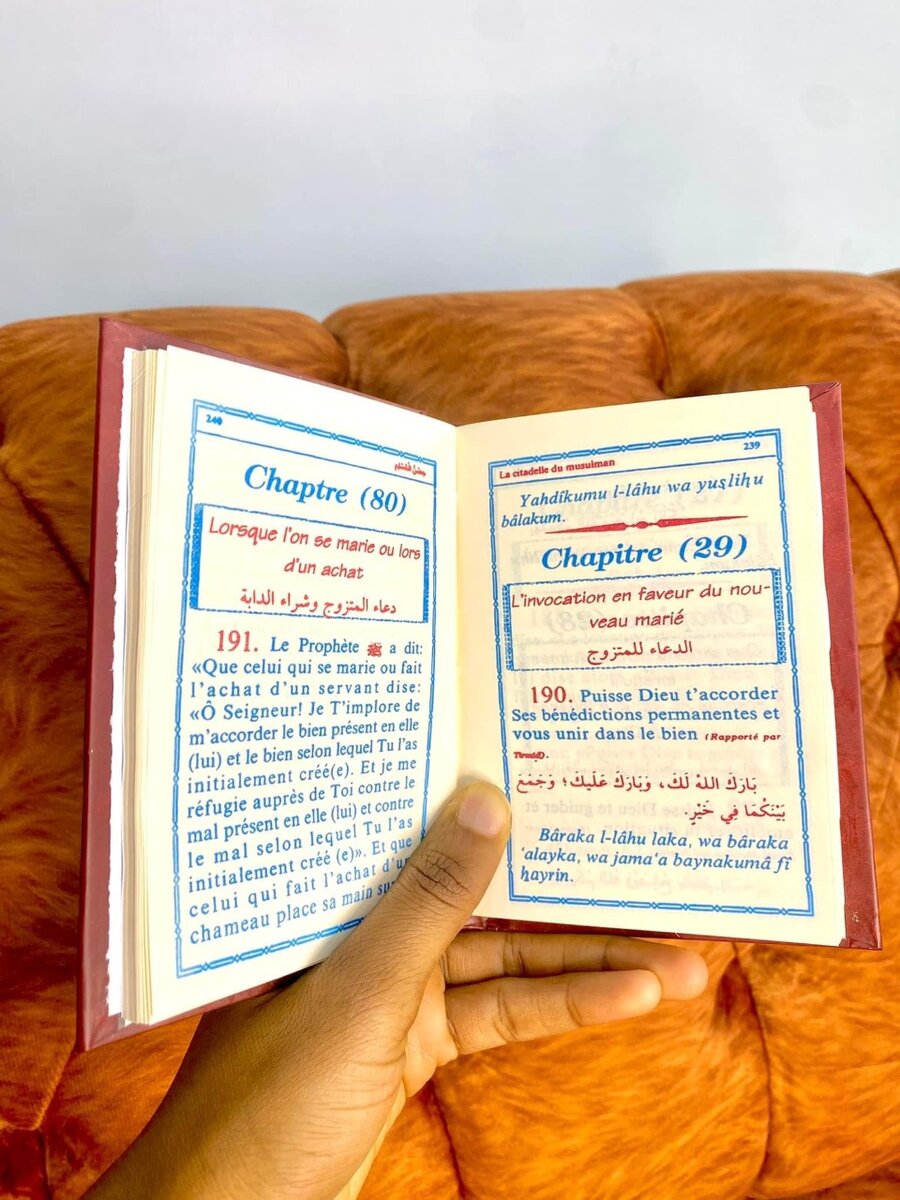 239
La citadelle du musulman
Yahdîkumu l-lâhu wa yuṣliḥu
bâlakum.
Chapitre (29)
L'invocation en faveur du nou-
veau marié
الدعاء للمتزوج
190. Puisse Dieu t'accorder
Ses bénédictions permanentes et
vous unir dans le bien (Rapporté par
Tirmidî).
بَارَكَ اللهُ لَكَ، وَبَارَكَ عَلَيكَ؛ وَجَمَعَ
بَيْنَكُمَا فِي خَيْرٍ.
Bâraka l-lâhu laka, wa bâraka
'alayka, wa jama'a baynakumâ fî
ḥayrin.
240
حصن المسلم
Chaptre (80)
Lorsque l'on se marie ou lors
d'un achat
دعاء المتزوج وشراء الدابة
191. Le Prophète ﷺ a dit:
«Que celui qui se marie ou fait
l'achat d'un servant dise:
«Ô Seigneur! Je T'implore de
m'accorder le bien présent en elle
(lui) et le bien selon lequel Tu l'as
initialement créé(e). Et je me
réfugie auprès de Toi contre le
mal présent en elle (lui) et contre
le mal selon lequel Tu l'as
initialement créé (e)». Et que
celui qui fait l'achat d'un
chameau place sa main